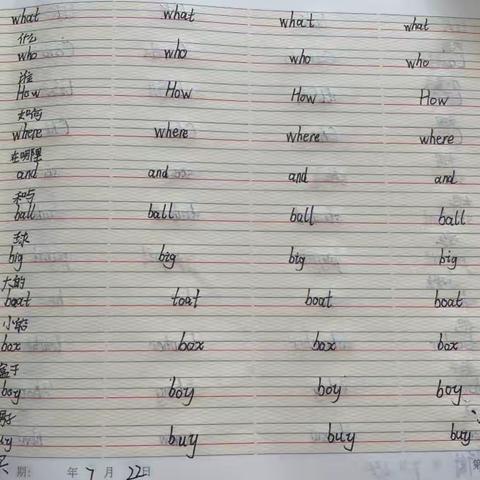 what what what what
什么
who who who who
谁
How How How How
如何
where where where where
在哪里
and and and and
和与
ball ball ball ball
球
big big big big
大的
boat toat boat boat
小船
box box box box
盒子
boy boy boy boy
buy buy buy
期: 年 7 月 22 日